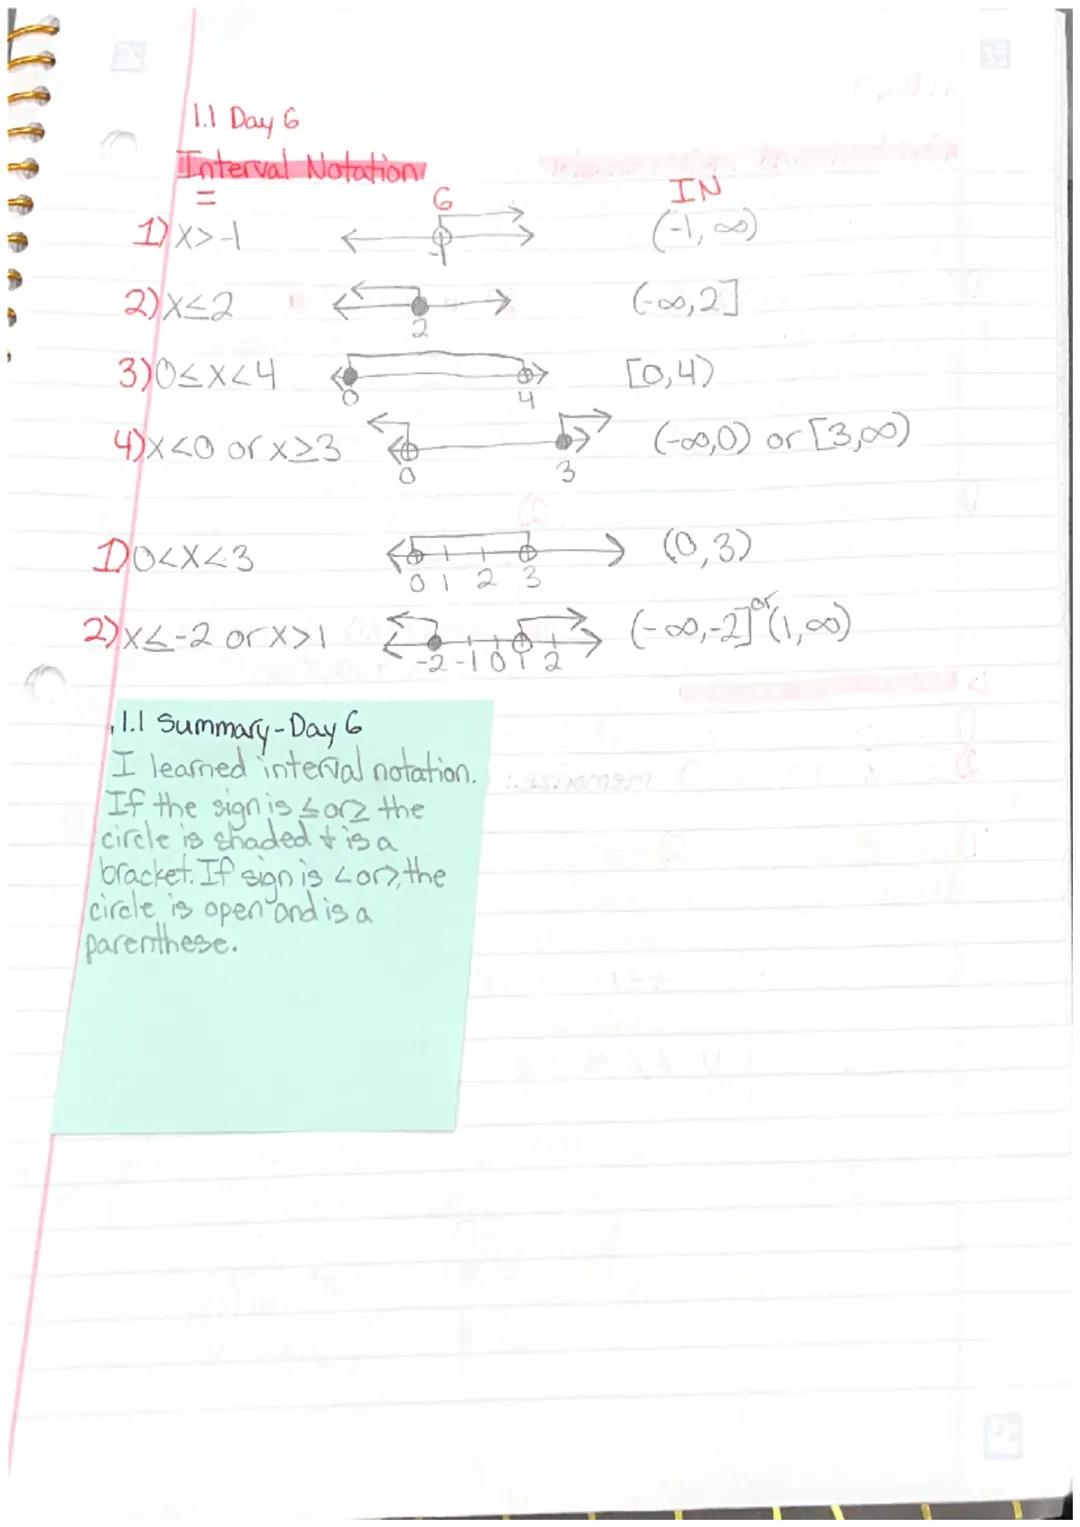 1.1 Day 6
Interval Notation
= G IN
1) x>-1 -1 (-1, ∞)
2) x≤2 2 (-∞,2]
3) 0≤x<4 0 4 [0,4)
4) x<0 or x≥3 0 3 (-∞,0) or [3,∞)
1) 0<x<3 0 1 2 3 (0,3)
2) x≤-2 or x>1 -2 -1 0 1 2 (-∞,-2] or (1,∞)
1.1 Summary-Day 6
I learned interval notation.
If the sign is ≤ or ≥ the
circle is shaded + is a
bracket. If sign is < or >, the
circle is open and is a
parenthese.
memorize: